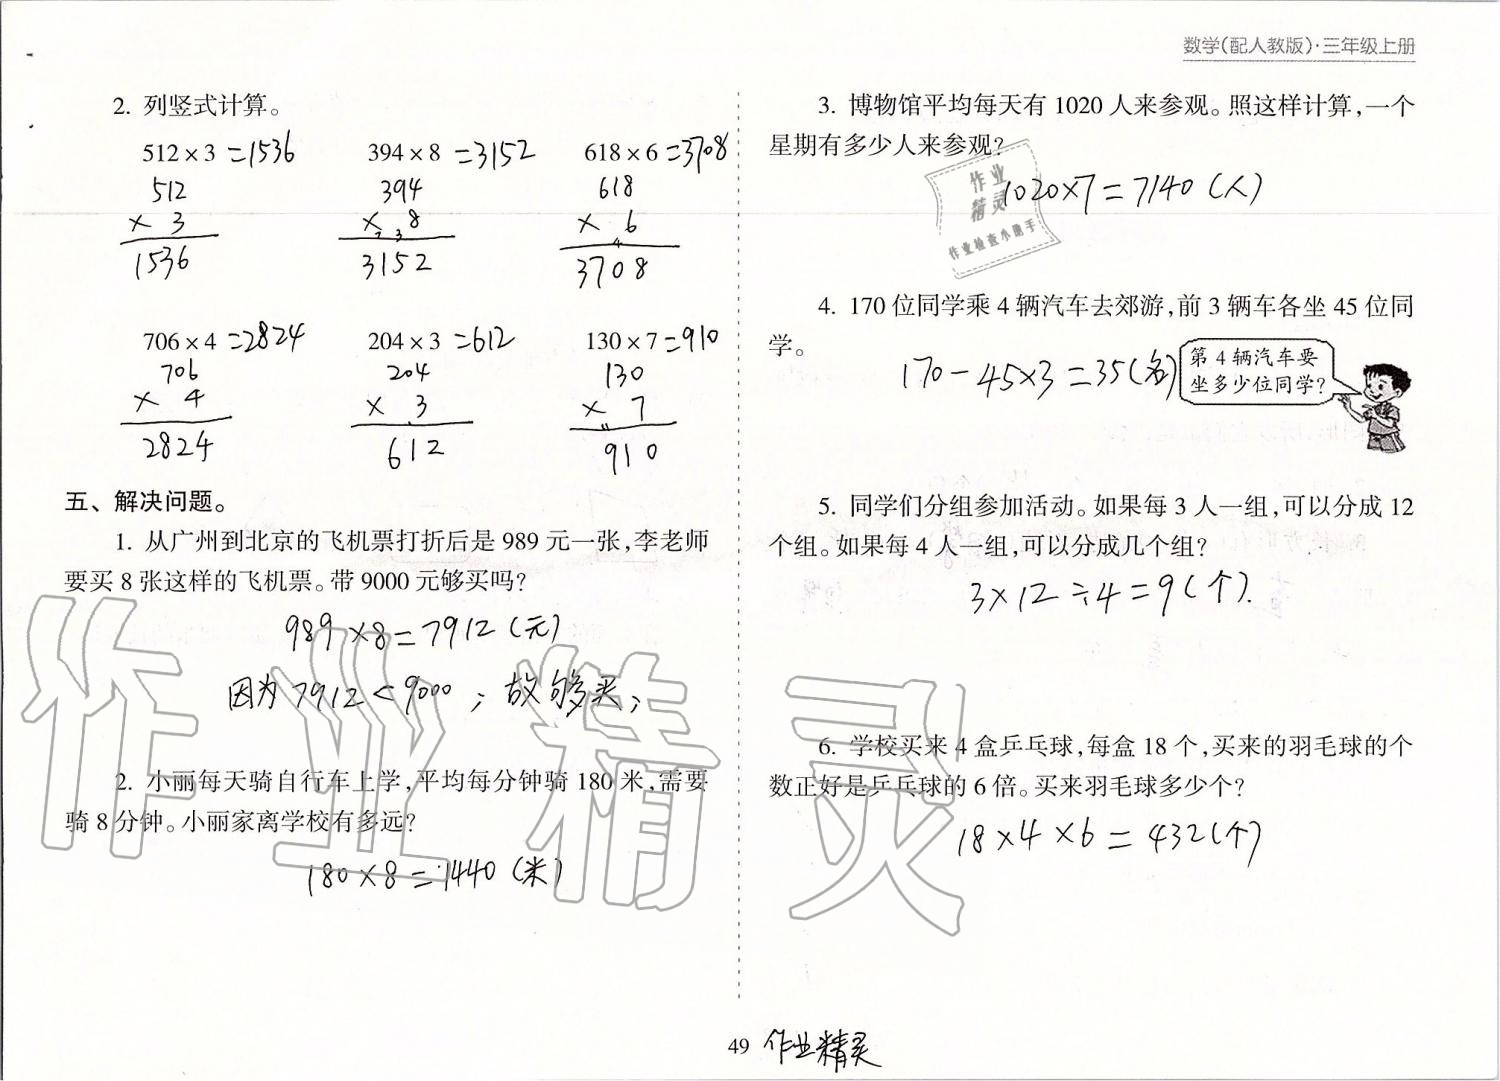 数学(配人教版)·三年级上册
2. 列竖式计算。
512×3=1536 394×8=3152 618×6=3708
512 394 618
× 3 × 8 × 6
1536 3152 3708
706×4=2824 204×3=612 130×7=910
706 204 130
× 4 × 3 × 7
2824 612 910
五、解决问题。
1. 从广州到北京的飞机票打折后是 989 元一张,李老师
要买 8 张这样的飞机票。带 9000 元够买吗?
989×8=7912(元)
因为7912<9000,故够买;
2. 小丽每天骑自行车上学,平均每分钟骑 180 米,需要
骑 8 分钟。小丽家离学校有多远?
180×8=1440(米)
3. 博物馆平均每天有 1020 人来参观。照这样计算,一个
星期有多少人来参观?
1020×7=7140(人)
作业
精灵
作业检查小助手
4. 170 位同学乘 4 辆汽车去郊游,前 3 辆车各坐 45 位同
学。
170-45×3=35(名)
第 4 辆汽车要
坐多少位同学?
5. 同学们分组参加活动。如果每 3 人一组,可以分成 12
个组。如果每 4 人一组,可以分成几个组?
3×12÷4=9(个).
6. 学校买来 4 盒乒乓球,每盒 18 个,买来的羽毛球的个
数正好是乒乓球的 6 倍。买来羽毛球多少个?
18×4×6=432(个)
作业精灵
49 作业精灵